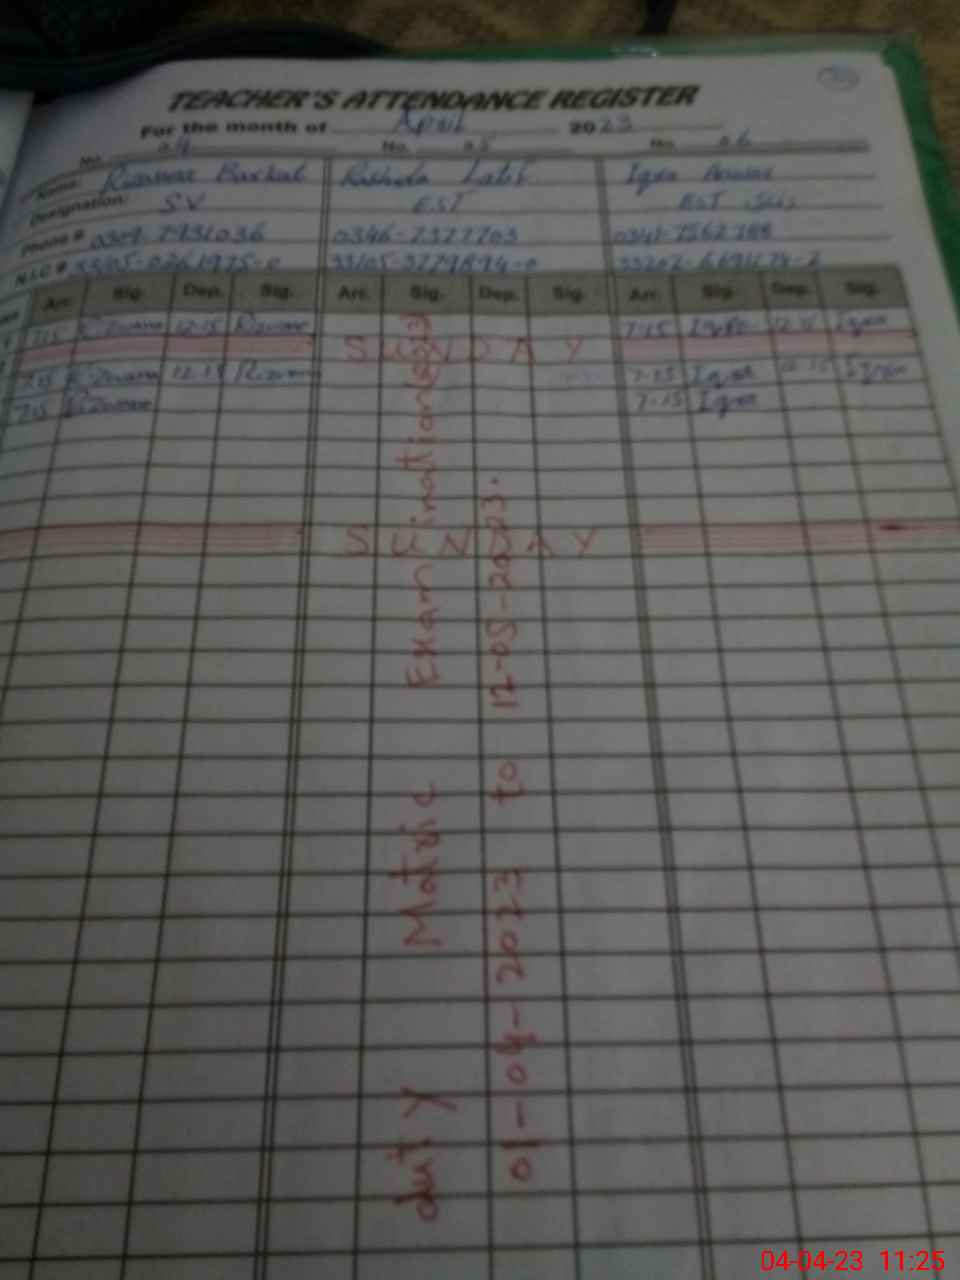 TEACHER'S ATTENDANCE REGISTER
For the month of April 2023
No. 04 No. 05 No. 06
Name: Rizwana Barkat Rashida Latif Iqra Anwar
Designation: SV EST EST
Phone # 0309-7931036 0346-7377703 0341-7562788
N.I.C #
Arr. Sig. Dep. Sig. Arr. Sig. Dep. Sig. Arr. Sig. Dep. Sig.
1 7:15 Rizwana 12-15 Rizwana 7-15 Iqra 12-15 Iqra
SUNDAY
7:15 Rizwana 12-15 Rizwana 7-15 Iqra 12-15 Iqra
7:15 Rizwana 7-15 Iqra
SUNDAY
duty Matric Examination
01-04-2023 to 12-05-2023.
04-04-23 11:25